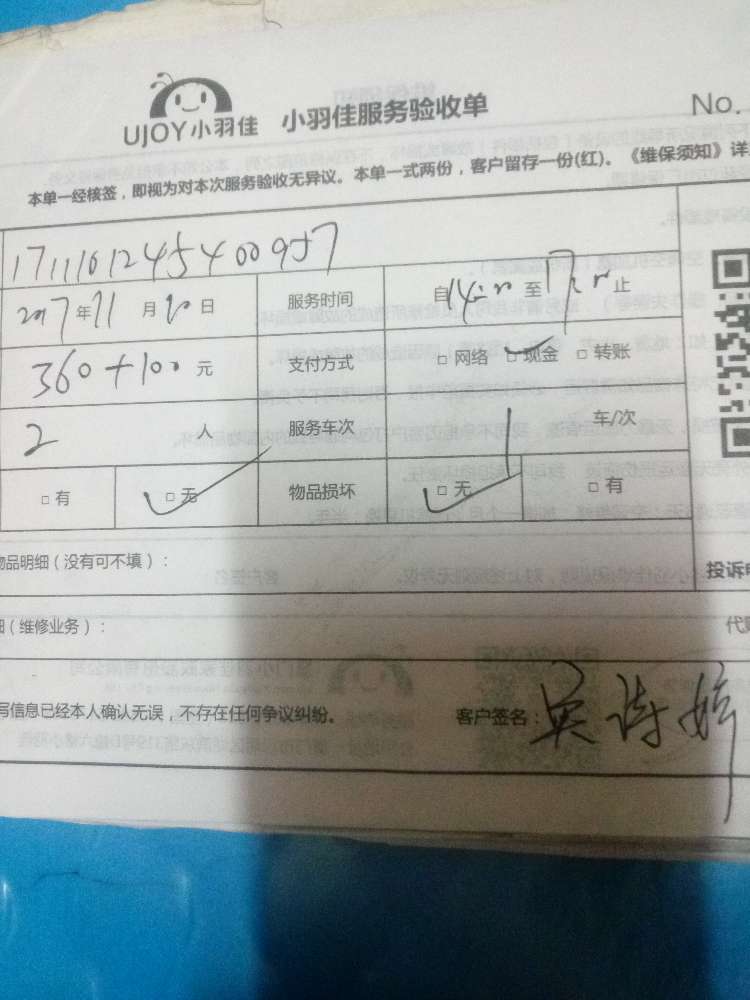 UJOY小羽佳 小羽佳服务验收单 No.
本单一经核签，即视为对本次服务验收无异议。本单一式两份，客户留存一份(红)。《维保须知》详
171110124545400957
2017年11月10日 服务时间 自14:00至17:00止
360+100元 支付方式 □网络 □现金 □转账
2人 服务车次 1车/次
□有 □无 物品损坏 □无 □有
物品明细（没有可不填）：
投诉电
（维修业务）：
写信息已经本人确认无误，不存在任何争议纠纷。 客户签名：吴诗婷